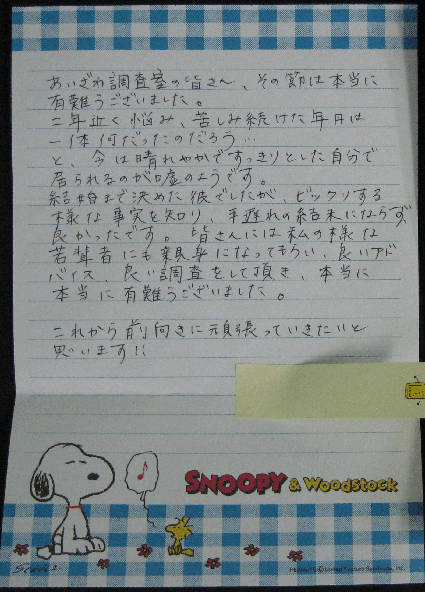 あいざわ調査室の皆さん、その節は本当に
有難うございました。
二年近く悩み、苦しみ続けた年月は
一体何だったのだろう…
と、今は晴れやかですっきりとした自分で
居られるのが嘘のようです。
結婚まで決めた彼でしたが、ビックリする
様な事実を知り、手遅れの結末にならず、
良かったです。皆さんには私の様な
若輩者にも親身になってもらい、良いアド
バイス、良い調査をして頂き、本当に
本当に有難うございました。
これから前向きに頑張っていきたいと
思います!!
SNOOPY & Woodstock